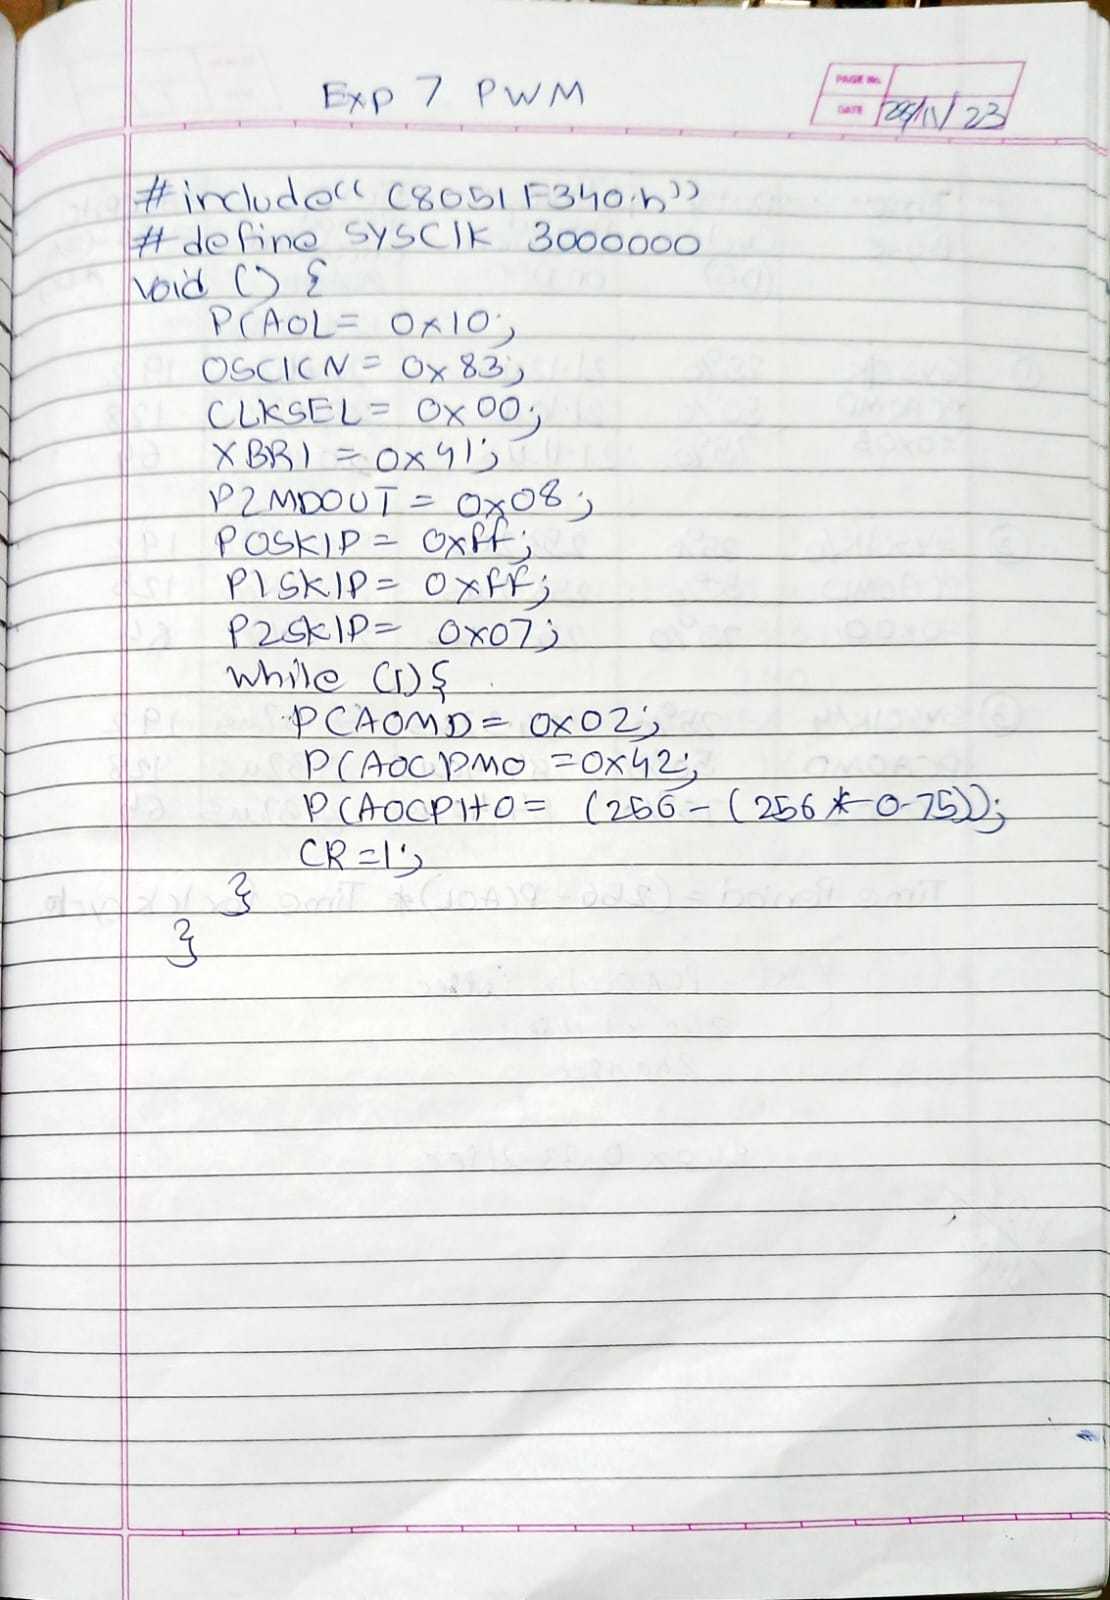 Exp 7 PWM
PAGE No.
DATE 24/11/23
#include“ C8051F340.h”
#define SYSCLK 3000000
void () {
PCA0L= 0x10;
OSCICN = 0x83;
CLKSEL= 0x00;
XBR1 = 0x41;
P2MDOUT = 0x08;
P0SKIP= 0xff;
P1SKIP= 0xff;
P2SKIP= 0x07;
while (1){
PCA0MD= 0x02;
PCA0CPM0 =0x42;
PCA0CPH0= (256-(256*0.75));
CR=1;
}
}